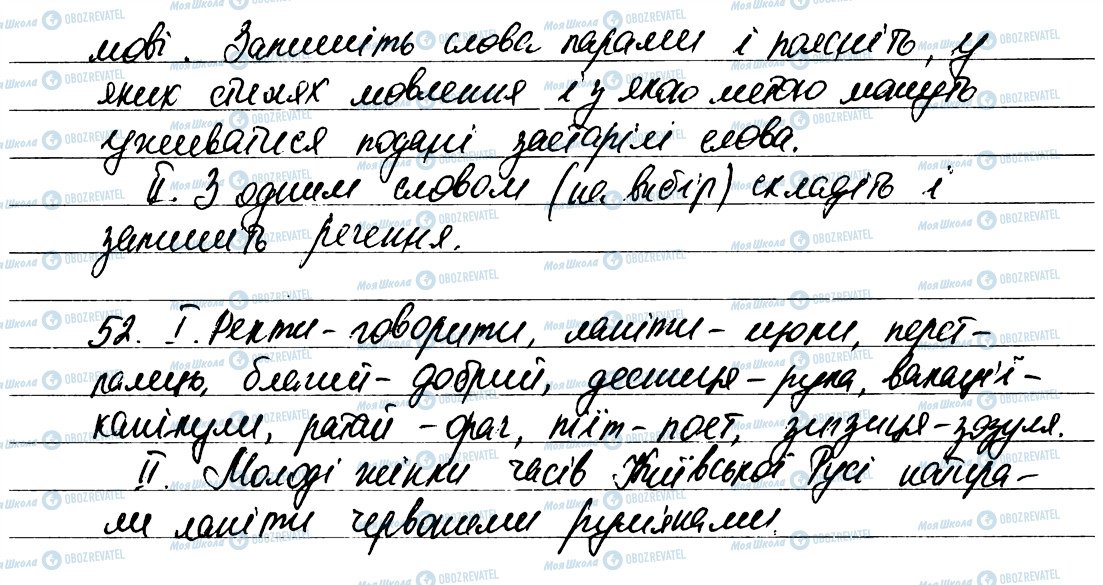 мові. Запишіть слова парами і поясніть, у
яких стилях мовлення і з якою метою можуть
уживатися подані застарілі слова.
ІІ. З одним словом (на вибір) складіть і
запишіть речення.
52. І. Ректи - говорити, ланіти - щоки, перст -
палець, благий - добрий, десниця - рука, вакації -
канікули, ратай - орач, піїт - поет, зигзиця - зозуля.
ІІ. Молоді жінки часів Київської Русі натира-
ли ланіти червоними рум'янами.